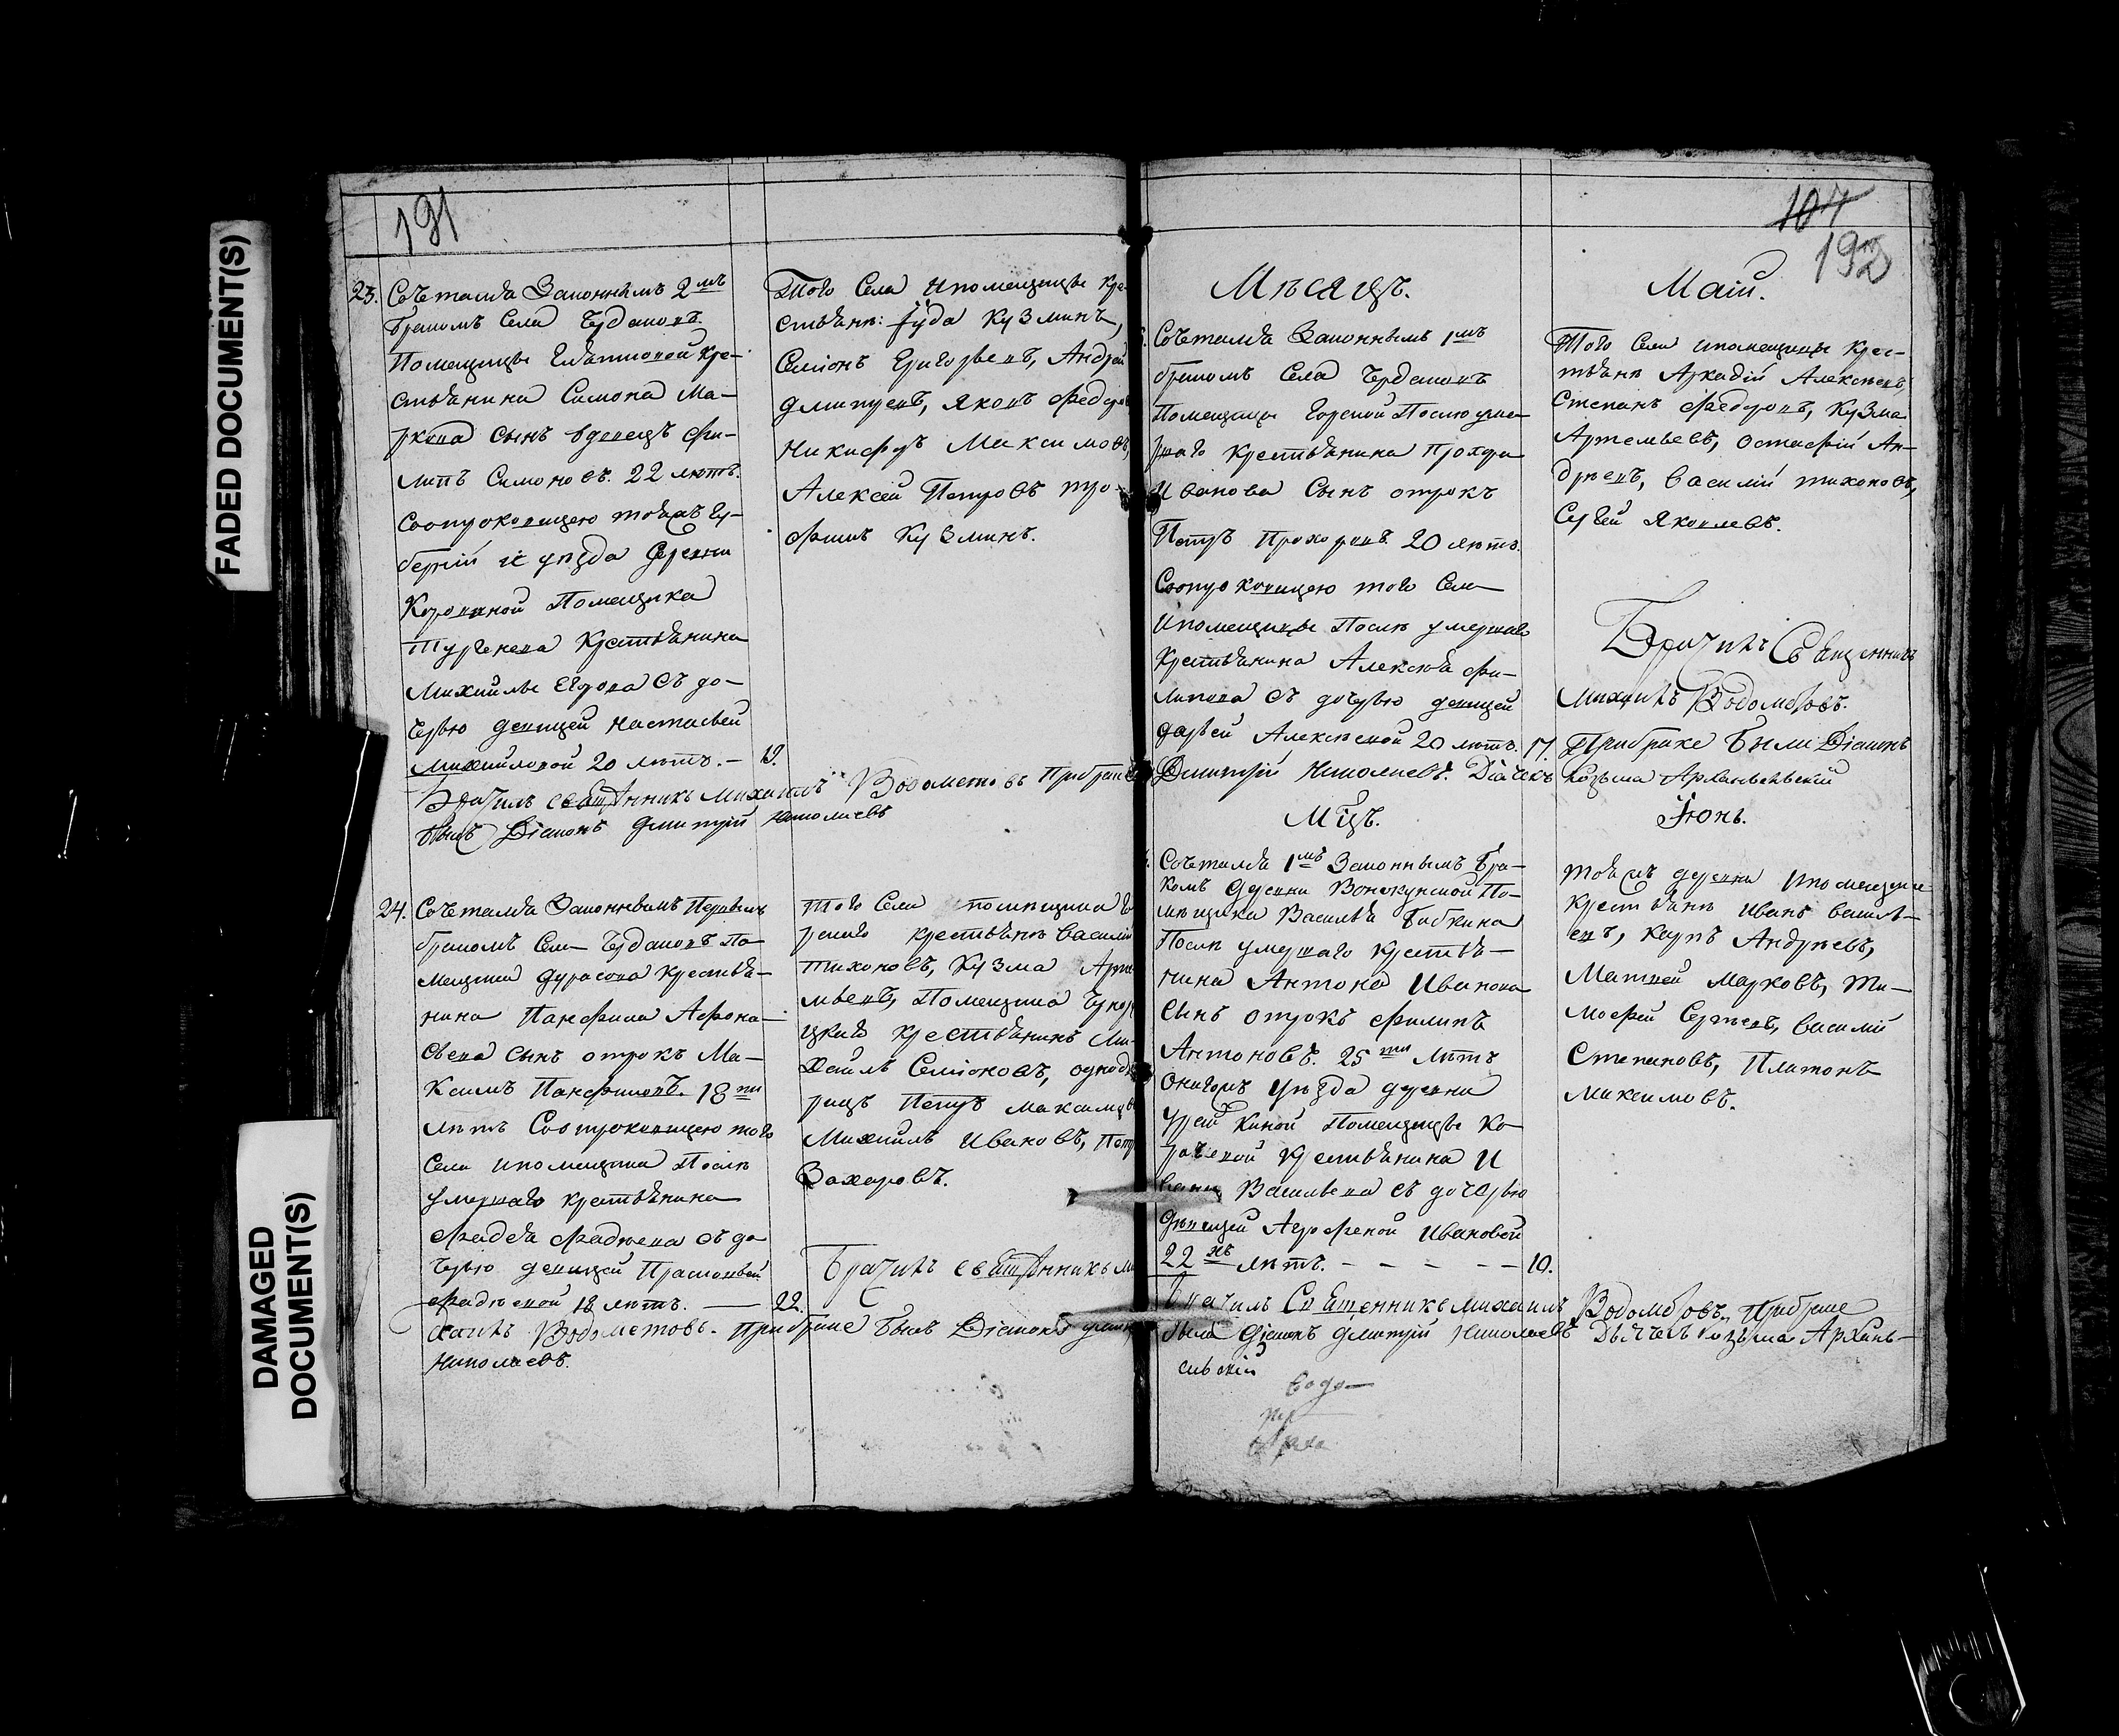 FADED DOCUMENT(S)
DAMAGED
DOCUMENT(S)
191
23. Сочетался Законнымъ 2мъ
бракомъ Села Чурдаковъ
Помещицы крѣ-
стьянина Симона Ма-
ркова сынъ вдовецъ Фи-
липъ Симоновъ. 22 лѣтъ.
Соотроковицею тояжъ Гу-
берніи и уѣзда деревни
Помещика
Тургенева Крестьянина
Михайлы Егорова съ до-
черью девицей Настасьей
Михайловой 20 лѣтъ. — 19.
Того Села ипомещицы кре-
стьяне: Іуда Кузминъ,
Семіонъ Григорьевъ, Андрей
Дмитріевъ, Яковъ Федоров
Никифоръ Максимовъ,
Алексей Петровъ тро-
фимъ Кузминъ.
Бракчилъ священникъ Михаилъ Водометовъ Прибраке
былъ Діаконъ Дмитрій Николаевъ
24. Сочетался Законнымъ Первымъ
бракомъ Села Чурдаковъ По-
мещика Дурасова крестья-
нина Панфила Афона-
сьева сынъ отрокъ Ма-
ксимъ Панфиловъ. 18ти
лѣтъ Соотроковицею того
Села ипомещика Послѣ
умершаго крестьянина
Фадея Фадѣева съ до-
черью девицей Прасковьей
Фадѣевой 18 лѣтъ. — 22.
Того Села помѣщика
крестьяне Василій
Тихоновъ, Кузма Арте
мьевъ, Помещика
цкаго крестьянинъ Ми-
хаилъ Семіоновъ, однодв
рецъ Петръ Максимов
Михайлъ Ивановъ, Петр
Захаровъ.
Брачилъ священникъ Ми
хаилъ Водометовъ. Прибраке былъ Діаконъ Дмитр
Николаевъ.
107
192
Мѣсяцъ. Маій.
Сочетался Законнымъ 1мъ
бракомъ Села Чурдаковъ
Помещицы Послѣ уме-
ршаго Крестьянина Прохора
Иванова Сынъ отрокъ
Петръ Прохоровъ. 20 лѣтъ.
Соотроковицею того Села
Ипомещицы Послѣ умершаго
Крестьянина Алексѣя Фи-
липова съ дочерью девицей
Дарьей Алексѣевой 20 лѣтъ. 17.
Того Села ипомещицы Крес-
тьяне Аркадій Алексѣевъ,
Степанъ Федоровъ, Кузма
Артемьевъ, Остафій Ан-
дрѣевъ, Василій Тихоновъ,
Сергей Яковлевъ.
Брачилъ Священникъ
Михаилъ Водометовъ.
Прибраке были Діаконъ
Дмитрій Николаевъ. Діячекъ Козьма Архангельскій
Мцъ. Іюнь.
Сочетался 1мъ Законнымъ бра-
комъ деревни По-
мѣщика Василья Бабкина
Послѣ умершаго крестья-
нина Антона Иванова
Сынъ отрокъ Филипъ
Антоновъ. 25ти лѣтъ
Онагожъ уѣзда деревни
Помещицы
Крестьянина И
вана Васильева съ дочерью
Дѣвицей Агрофеной Ивановой
22хъ лѣтъ. - - - - - 10.
тояжъ деревни ипомещика
Крестьяне Иванъ Василь-
евъ, Карпъ Андрѣевъ,
Матвей Марковъ, Ти-
мофей Сергѣевъ, Василій
Степановъ, Платонъ
Максимовъ.
Брачилъ Священникъ Михаилъ Водометовъ. Прибраке
были Діаконъ Дмитрій Николаевъ Дьячекъ Козьма Архань-
гельскій